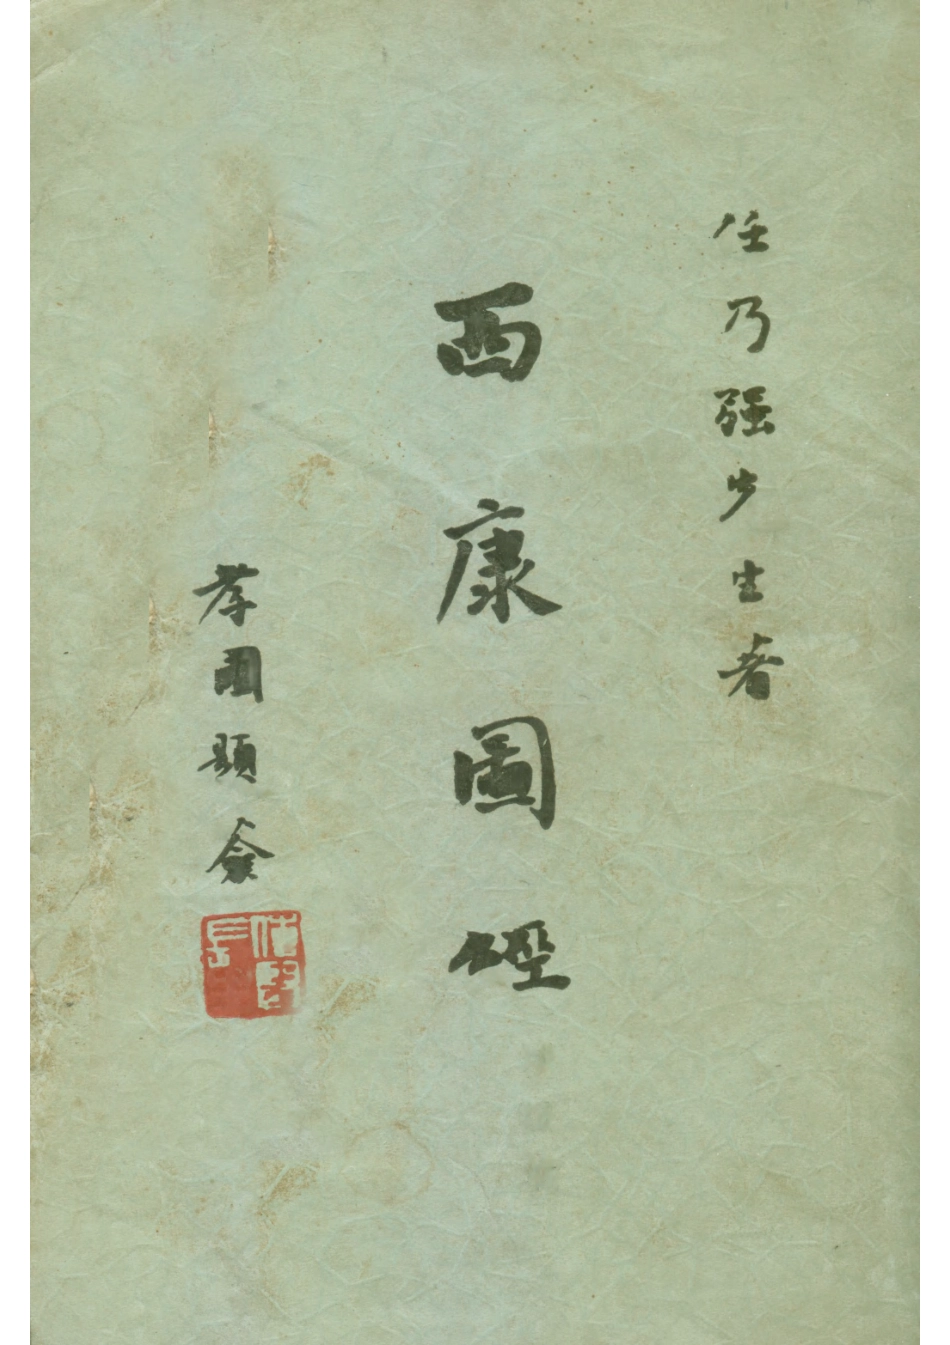 任乃强先生著
西康圖經
孝園題僉